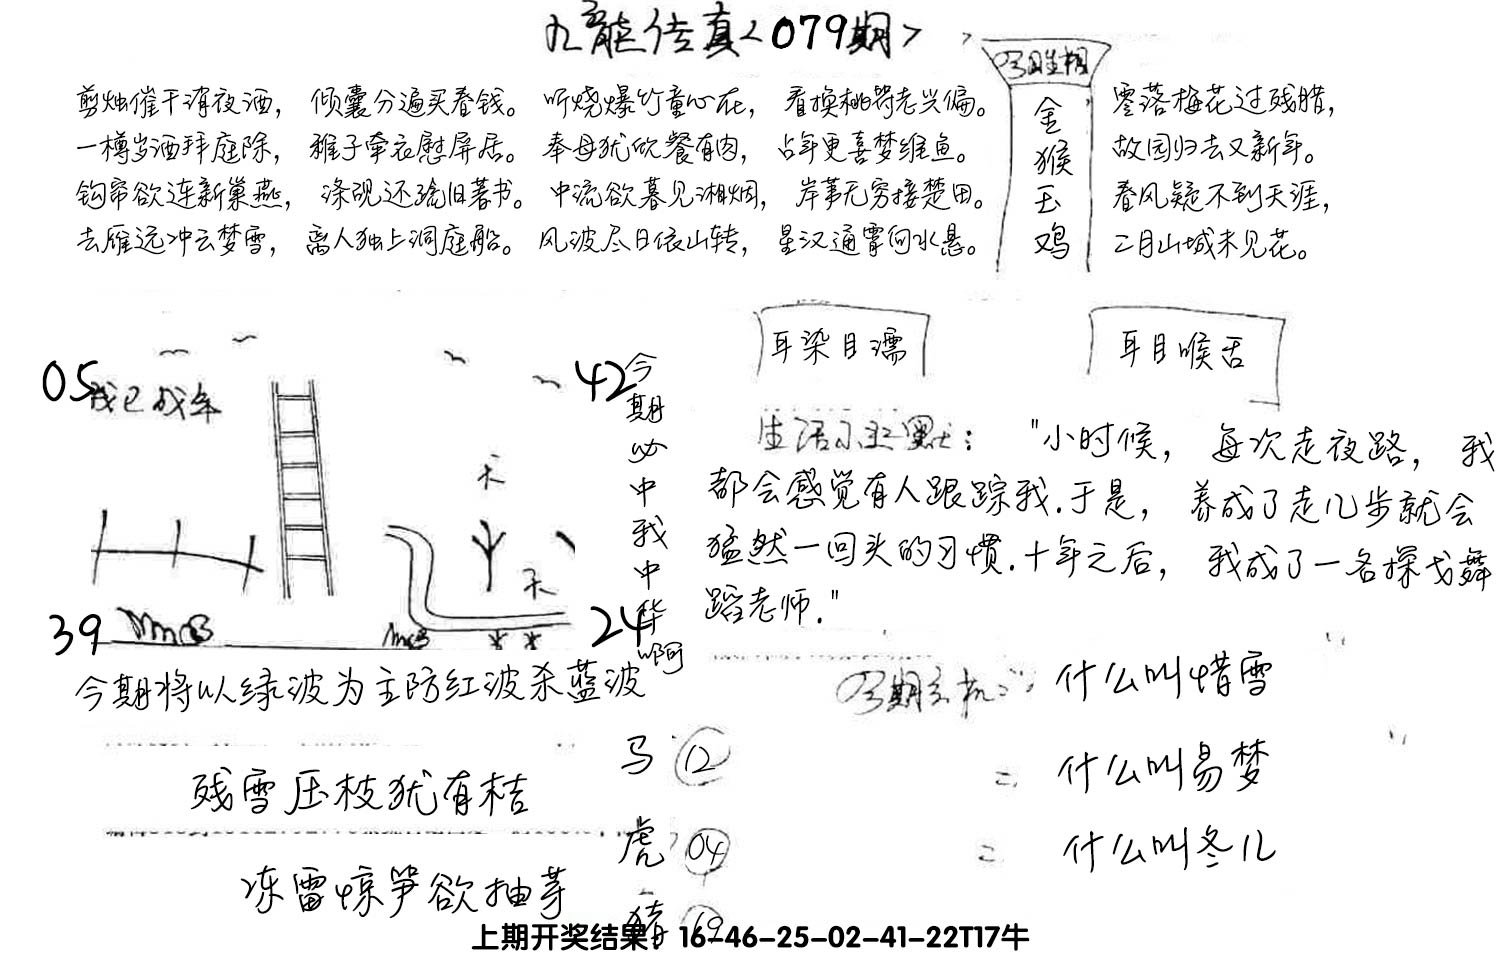 九龍传真<079期>
今日生相
金猴玉鸡
剪烛催干消夜酒，倾囊分遍买春钱。听烧爆竹童心在，看换桃符老兴偏。
一樽岁酒拜庭除，稚子牵衣慰屏居。奉母犹欣餐有肉，占年更喜梦维鱼。
钩帘欲连新巢燕，涤砚还疏旧著书。中流欲暮见湘烟，岸苇无穷接楚田。
去雁远冲云梦雪，离人独上洞庭船。风波尽日依山转，星汉通霄向水悬。
零落梅花过残腊，
故园归去又新年。
春风疑不到天涯，
二月山城未见花。
05
我已成年
42
天
天
39
24
今期必中我中华啊
今期将以绿波为主防红波杀蓝波
耳染目濡
耳目喉舌
生活小幽默："小时候，每次走夜路，我
都会感觉有人跟踪我.于是，养成了走几步就会
猛然一回头的习惯.十年之后，我成了一名探戈舞
蹈老师."
今期玄机：什么叫惜雪
二 什么叫易梦
二 什么叫冬儿
马 12
虎 04
猪 19
残雪压枝犹有桔
冻雷惊笋欲抽芽
上期开奖结果：16-46-25-02-41-22T17牛